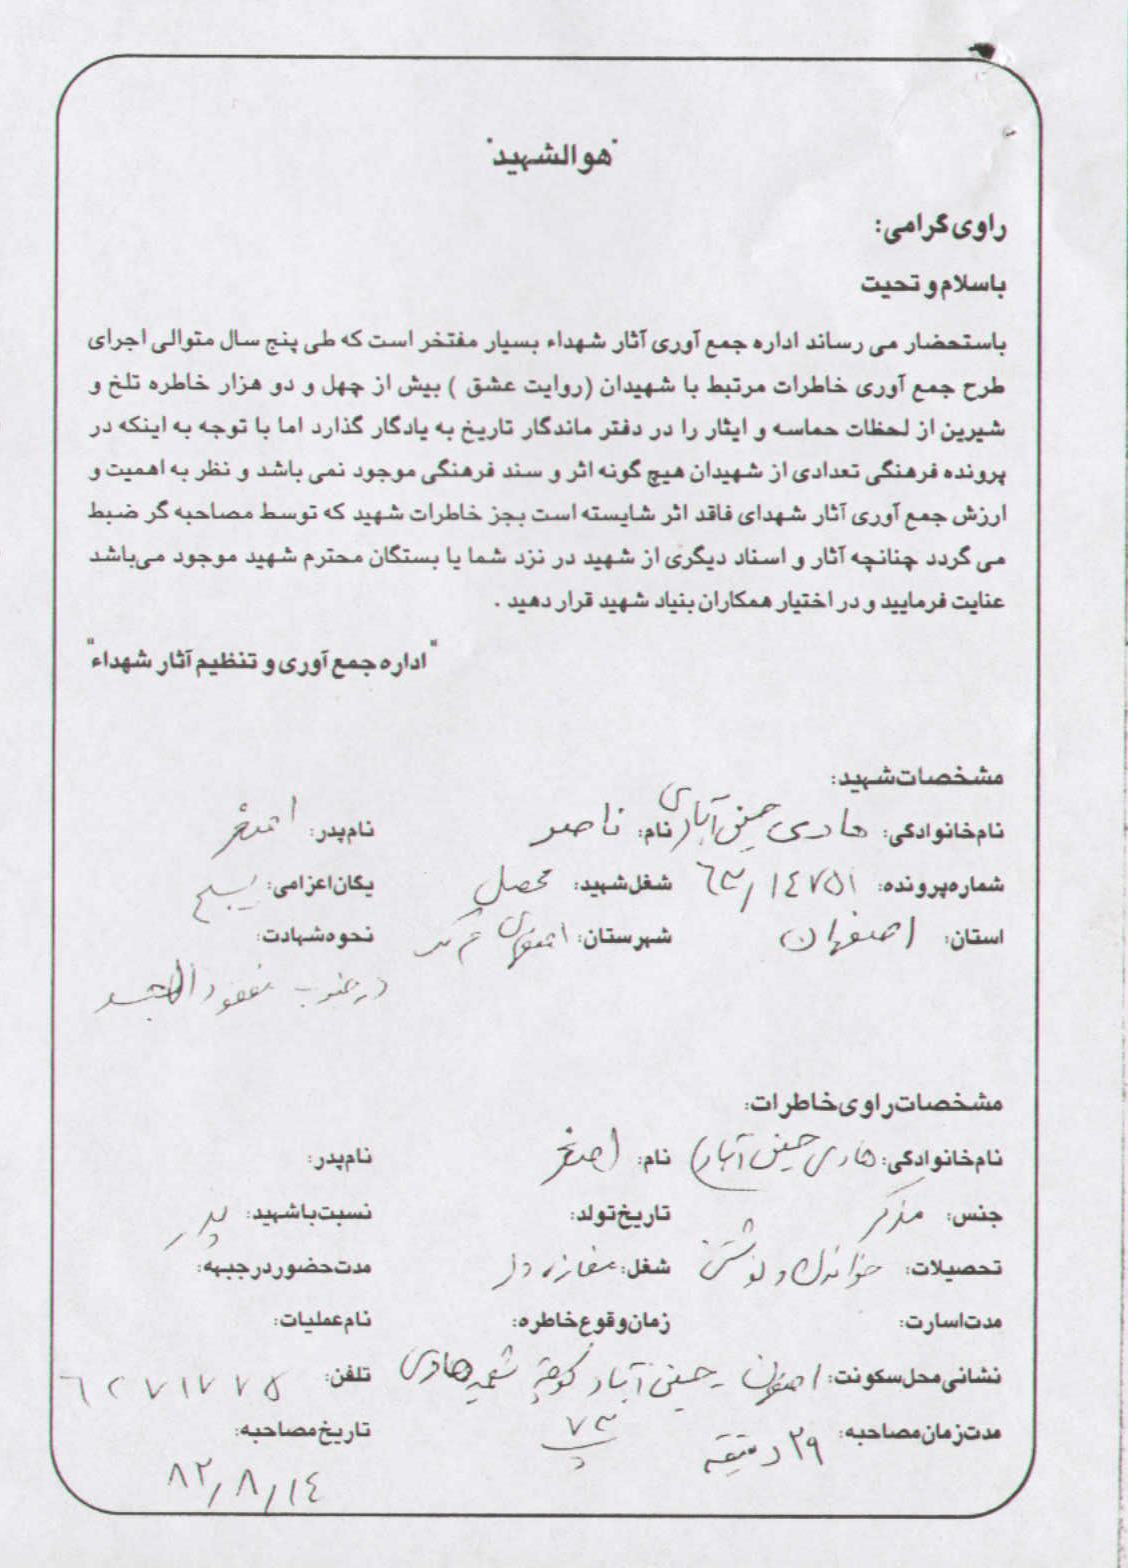 "هوالشهید"
راوی گرامی:
باسلام و تحیت
باستحضار می رساند اداره جمع آوری آثار شهداء بسیار مفتخر است که طی پنج سال متوالی اجرای
طرح جمع آوری خاطرات مرتبط با شهیدان (روایت عشق ) بیش از چهل و دو هزار خاطره تلخ و
شیرین از لحظات حماسه و ایثار را در دفتر ماندگار تاریخ به یادگار گذارد اما با توجه به اینکه در
پرونده فرهنگی تعدادی از شهیدان هیچ گونه اثر و سند فرهنگی موجود نمی باشد و نظر به اهمیت و
ارزش جمع آوری آثار شهدای فاقد اثر شایسته است بجز خاطرات شهید که توسط مصاحبه گر ضبط
می گردد چنانچه آثار و اسناد دیگری از شهید در نزد شما یا بستگان محترم شهید موجود می‌باشد
عنایت فرمایید و در اختیار همکاران بنیاد شهید قرار دهید .
"اداره جمع آوری و تنظیم آثار شهداء"
مشخصات شهید:
نام خانوادگی: هادی حسین آبادی نام: ناصر نام پدر: اصغر
شماره پرونده: ۶۳/۱۴۷۵۱ شغل شهید: محصل یگان اعزامی: بسیج
استان: اصفهان شهرستان: اصفهان مرکز نحوه شهادت:
در جنوب مفقود الجسد
مشخصات راوی خاطرات:
نام خانوادگی: هادی حسین آبادی نام: اصغر نام پدر:
جنس: مذکر تاریخ تولد: نسبت با شهید: پدر
تحصیلات: خواندن و نوشتن شغل: مغازه دار مدت حضور در جبهه:
مدت اسارت: زمان وقوع خاطره: نام عملیات:
نشانی محل سکونت: اصفهان - حسین آباد کوچه شهید هادی تلفن: ۶۲۷۱۷۷۵
مدت زمان مصاحبه: ۲۹ دقیقه پ ۷۳ تاریخ مصاحبه:
۸۲/۸/۱۴